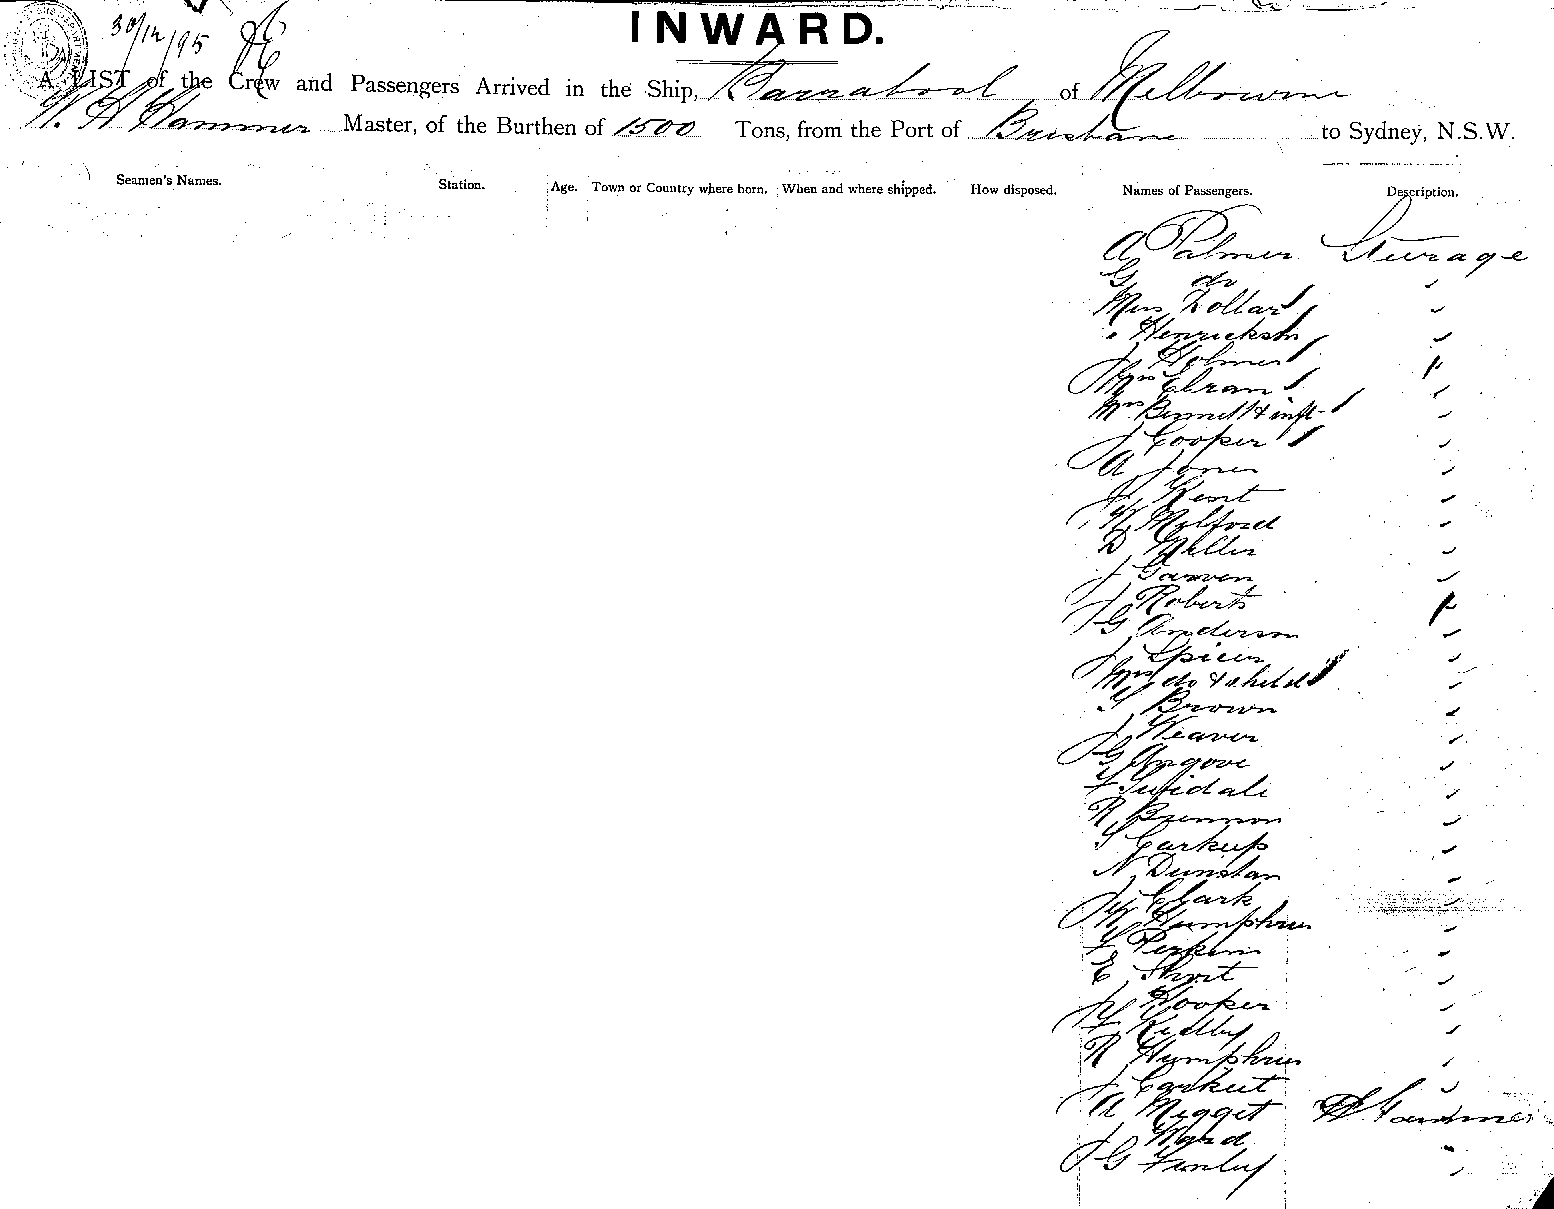 INWARD.
30/12/95
A LIST of the Crew and Passengers Arrived in the Ship, Barrabool of Melbourne
W. H. Hammer Master, of the Burthen of 1500 Tons, from the Port of Brisbane to Sydney, N.S.W.
Seamen's Names. Station. Age. Town or Country where born. When and where shipped. How disposed. Names of Passengers. Description.
A Palmer Steerage
G do "
Miss Dollar "
" Henrickson "
J Holmes "
Mrs Ebran "
Mrs Bennett & inft "
J Cooper "
A Jones "
J Kent "
W Molford "
D Miller "
J Garven "
J Roberts "
G Anderson "
J Spicer "
Mrs do & child "
G Brown "
J Weaver "
G Angove "
F Twidale "
R Brennon "
S Carkup "
N Dunstan "
J Clark "
W Humphries "
F Perkins "
E Short "
J Hooper "
F Kidby "
R Humphries "
J Carkeet "
A Megget
J Ward "
G Finlay "